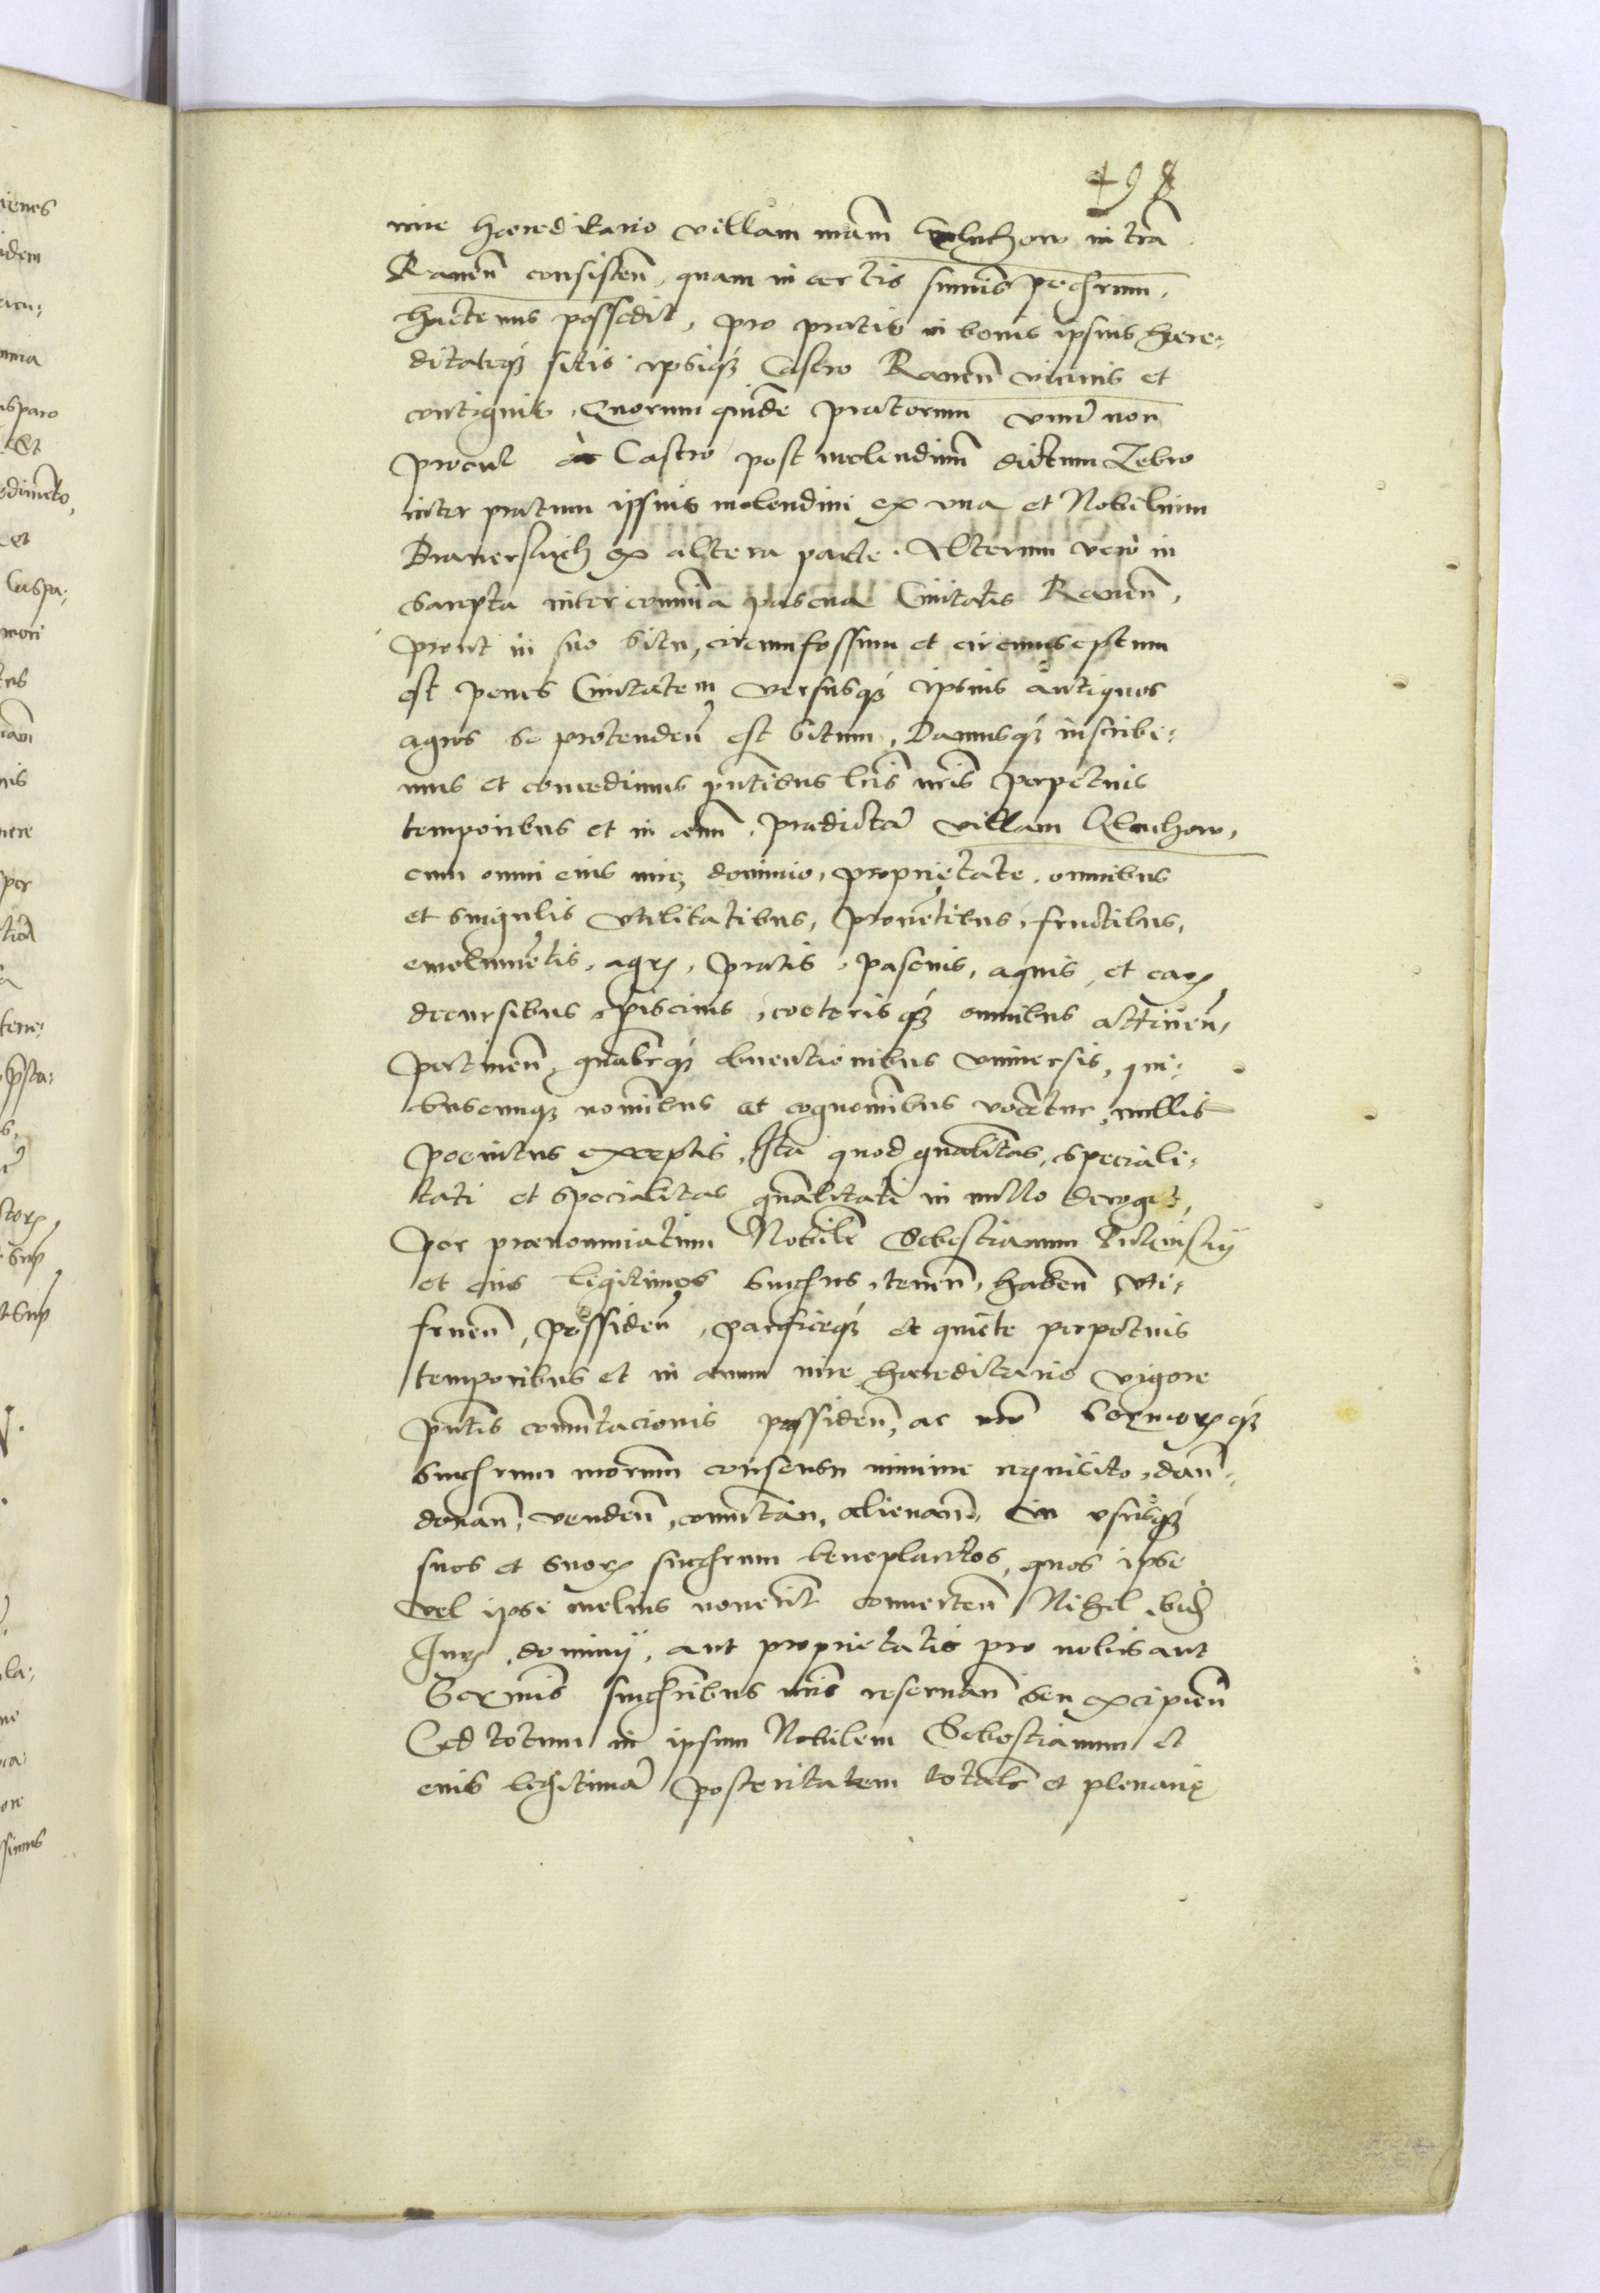 198
iure haereditario villam nr̃am Gluchow in tr̃a
Rauen̄ consisten̄, quam in certis sum̄is pechrum,
hactenus possedit, pro pratis in bonis ipsius haere-
ditatiqꝫ sitis ipsiqꝫ Castro Rauen̄ vicinis et
contiguis, Quorum quidē pratorum vnū non
procul à Castro post molendinū dictum Zebro
inter pratum ipsius molendini ex vna et Nobilium
ex altera parte. Alterum verò in
Sarepta inter com̄unia pascua Ciuitatis Rauen̄,
prout in suo situ, circumfossum et circumseptum
est penes Ciuitatem versusqꝫ ipsius antiquos
agros se protenden̄ est situm, Damusqꝫ inscribi-
mus et concedimus pn̄tibus lr̃is nr̃is perpetuis
temporibus et in aeuū, praedictā villam Gluchow,
cum omni eius iure, dominio, proprietate, omnibus
et singulis vtilitatibus, prouētibus, fructibus,
emolumētis, agrꝭ, pratis, pascuis, aquis, et earꝫ
decursibus, piscinis, coeterisqꝫ omnibus attinen̄,
pertinen̄, gnãlrqꝫ obuentionibus vniuersis, qui-
buscunqꝫ nominibus et cognominibus vocētur, nullis
poenitus exceptis, Ita quod gnãlitas, speciali-
tati et specialitas gnãlitati in nullo deroget,
per praenominatum Nobilē Sebestianum
et eius legitimos succħres, tenen̄, haben̄ vti-
fruen̄, possiden̄, pacificeqꝫ et quiete perpetuis
temporibus et in aeuum iure haereditario vigore
pn̄tis com̄utacionis possiden̄, ac nr̃o Serꝫmorꝫqꝫ
succħrum nr̃orum consensu minime requisito, dan̄
donan̄, venden̄, com̄utan̄, alienan̄, in vsusqꝫ
suos et suorꝫ succħrum beneplacitos, quos ipse
vel ipsi melius nouerit conuerten̄ Nihil ibidē
Iuris, dominij, aut proprietatis pro nobis aut
Serꝫmis succħribus nr̃is reseruan̄ seu excipien̄
Sed totum in ipsum Nobilem Sebestianum et
eius legitimā posteritatem totalr̃ et plenarie